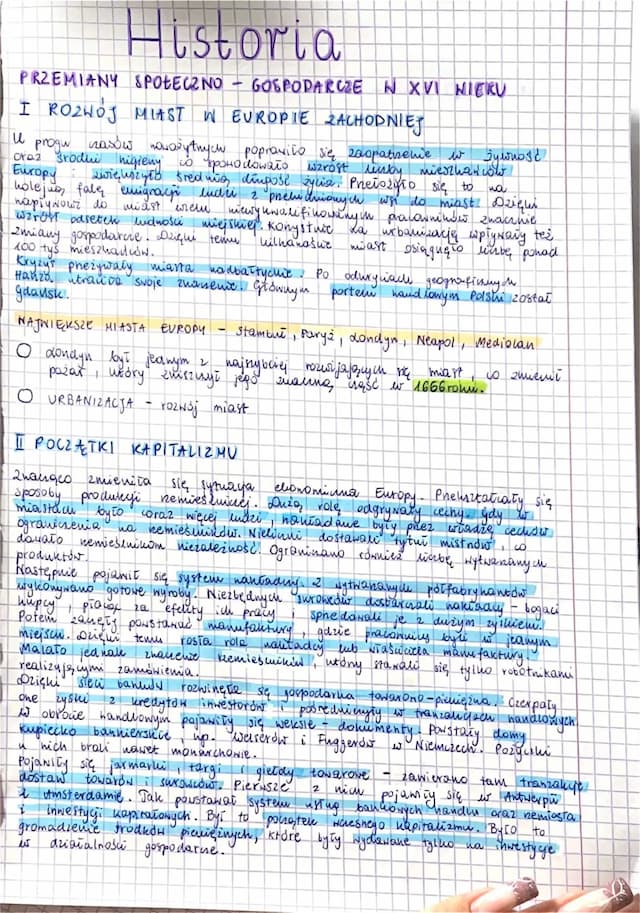 Historia
PRZEMIANY SPOŁECZNO - GOSPODARCZE W XVI WIEKU
I ROZWÓJ MIAST W EUROPIE ZACHODNIEJ
U progu czasów nowożytnych poprawiło się zaopatrzenie w żywność
oraz środki higieny co spowodowało wzrost liczby mieszkańców
Europy i zwiększyło średnią długość życia. Przełożyło się to na
kolejną falę emigracji ludzi z przeludnionych wsi do miast. Dzięki
napływowi do miast wielu niewykwalifikowanym pracowników znacznie
wzrósł odsetek ludności miejskiej. Korzystnie na urbanizację wpływały też
zmiany gospodarcze. Dzięki temu kilkanaście miast osiągnęło liczbę ponad
100 tyś mieszkańców.
Kryzys przeżywały miasta nadbałtyckie. Po odkryciach geograficznych
Hanza utraciła swoje znaczenie. Głównym portem handlowym Polski został
Gdańsk.
NAJWIĘKSZE MIASTA EUROPY - Stambuł, Paryż, Londyn, Neapol, Mediolan
Londyn był jednym z najszybciej rozwijających się miast, co zmienił
pożar, który zniszczył jego znaczną część w 1666 roku.
URBANIZACJA - rozwój miast
II POCZĄTKI KAPITALIZMU
Znacząco zmieniła się sytuacja ekonomiczna Europy. Przekształcały się
sposoby produkcji rzemieślniczej. Dużą rolę odgrywały cechy. Gdy w
miastach było coraz więcej ludzi, nakładane były przez władze cechów
ograniczenia na rzemieślników. Nieliczni dostawali tytuł mistrzów, co
dawało rzemieślnikom niezależność. Ograniczano również liczbę wytwarzanych
produktów.
Następnie pojawił się system nakładczy. Z wytwarzanych półfabrykantów
wykonywano gotowe wyroby. Niezbędnych surowców dostarczali nakładcy - bogaci
kupcy, płacąc za efekty ich pracy i sprzedawali je z dużym zyskiem.
Potem zaczęły powstawać manufaktury, gdzie pracownicy byli w jednym
miejscu. Dzięki temu rosła rola nakładcy lub właściciela manufaktury.
Malało jednak znaczenie rzemieślników, którzy stawali się tylko robotnikami
realizującymi zamówienia.
Dzięki sieci banków rozwinęła się gospodarka towarowo-pieniężna. Czerpały
one zyski z kredytów inwestorów i pośredniczyły w tranzakcjach handlowych.
W obrocie handlowym pojawiły się weksle - dokumenty. Powstały domy
kupiecko bankierskie, np. Welserów i Fuggerów w Niemczech. Pożyczki
u nich brali nawet monarchowie.
Pojawiły się jarmarki, targi i giełdy towarowe - zawierano tam tranzakcje
dostaw towarów i surowców. Pierwsze z nich pojawiły się w Antwerpii
i Amsterdamie. Tak powstawał system usług bankowych handlu oraz rzemiosła
i inwestycji kapitałowych. Był to początek wczesnego kapitalizmu. Było to
gromadzenie środków pieniężnych, które były wydawane tylko na inwestycje
w działalności gospodarcze.